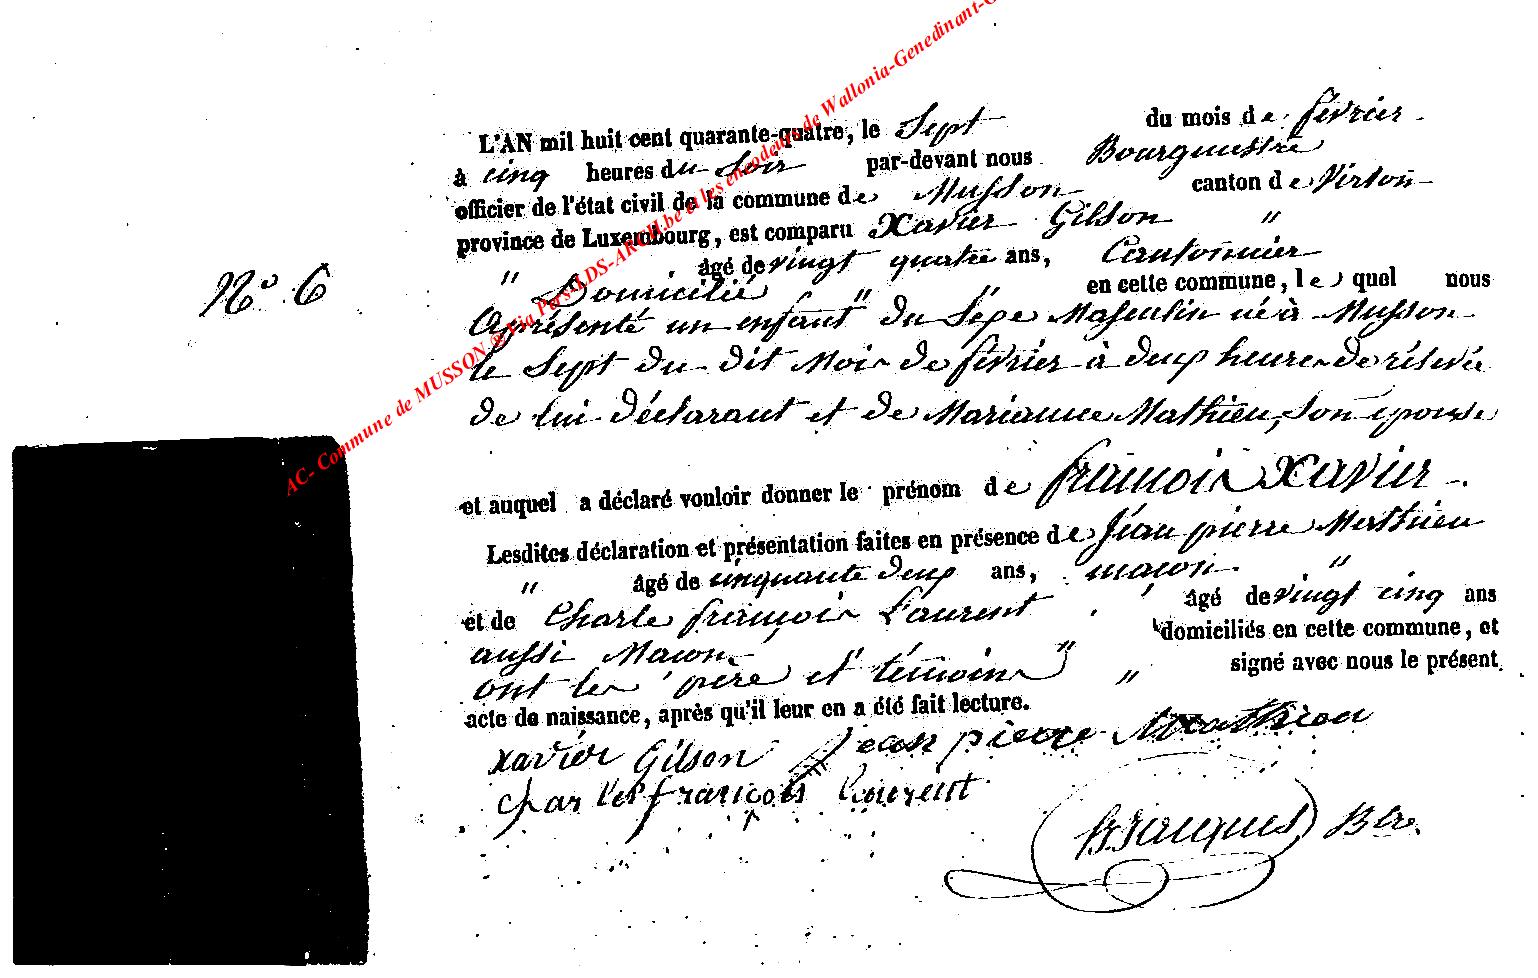 L'AN mil huit cent quarante-quatre, le Sept du mois de février
à cinq heures du Soir par-devant nous Bourgmestre
officier de l'état civil de la commune de Musson canton de Virton
province de Luxembourg, est comparu Xavier Gilson "
" âgé de vingt quatre ans, Cantonnier
Domicilié " " en cette commune, le quel nous
N° 6
a présenté un enfant du Sexe Masculin né à Musson
le Sept du dit Mois de février à deux heures de rélevée
de lui déclarant et de Marianne Mathieu, Son épouse
et auquel a déclaré vouloir donner le prénom de françois Xavier.
Lesdites déclaration et présentation faites en présence de Jéan pierre Mathieu
" âgé de cinquante deux ans, macon "
et de Charle françois Laurent âgé de vingt cinq ans
aussi Macon " domiciliés en cette commune, et
ont les père et témoins " signé avec nous le présent
acte de naissance, après qu'il leur en a été fait lecture.
xavier Gilson jean pierre Mathieu
charles françois laurent
Jacques Btre
AC- Commune de MUSSON @ Via Pars-LDS-ARCH.be et les encodeurs de Wallonia-Genedinant-G